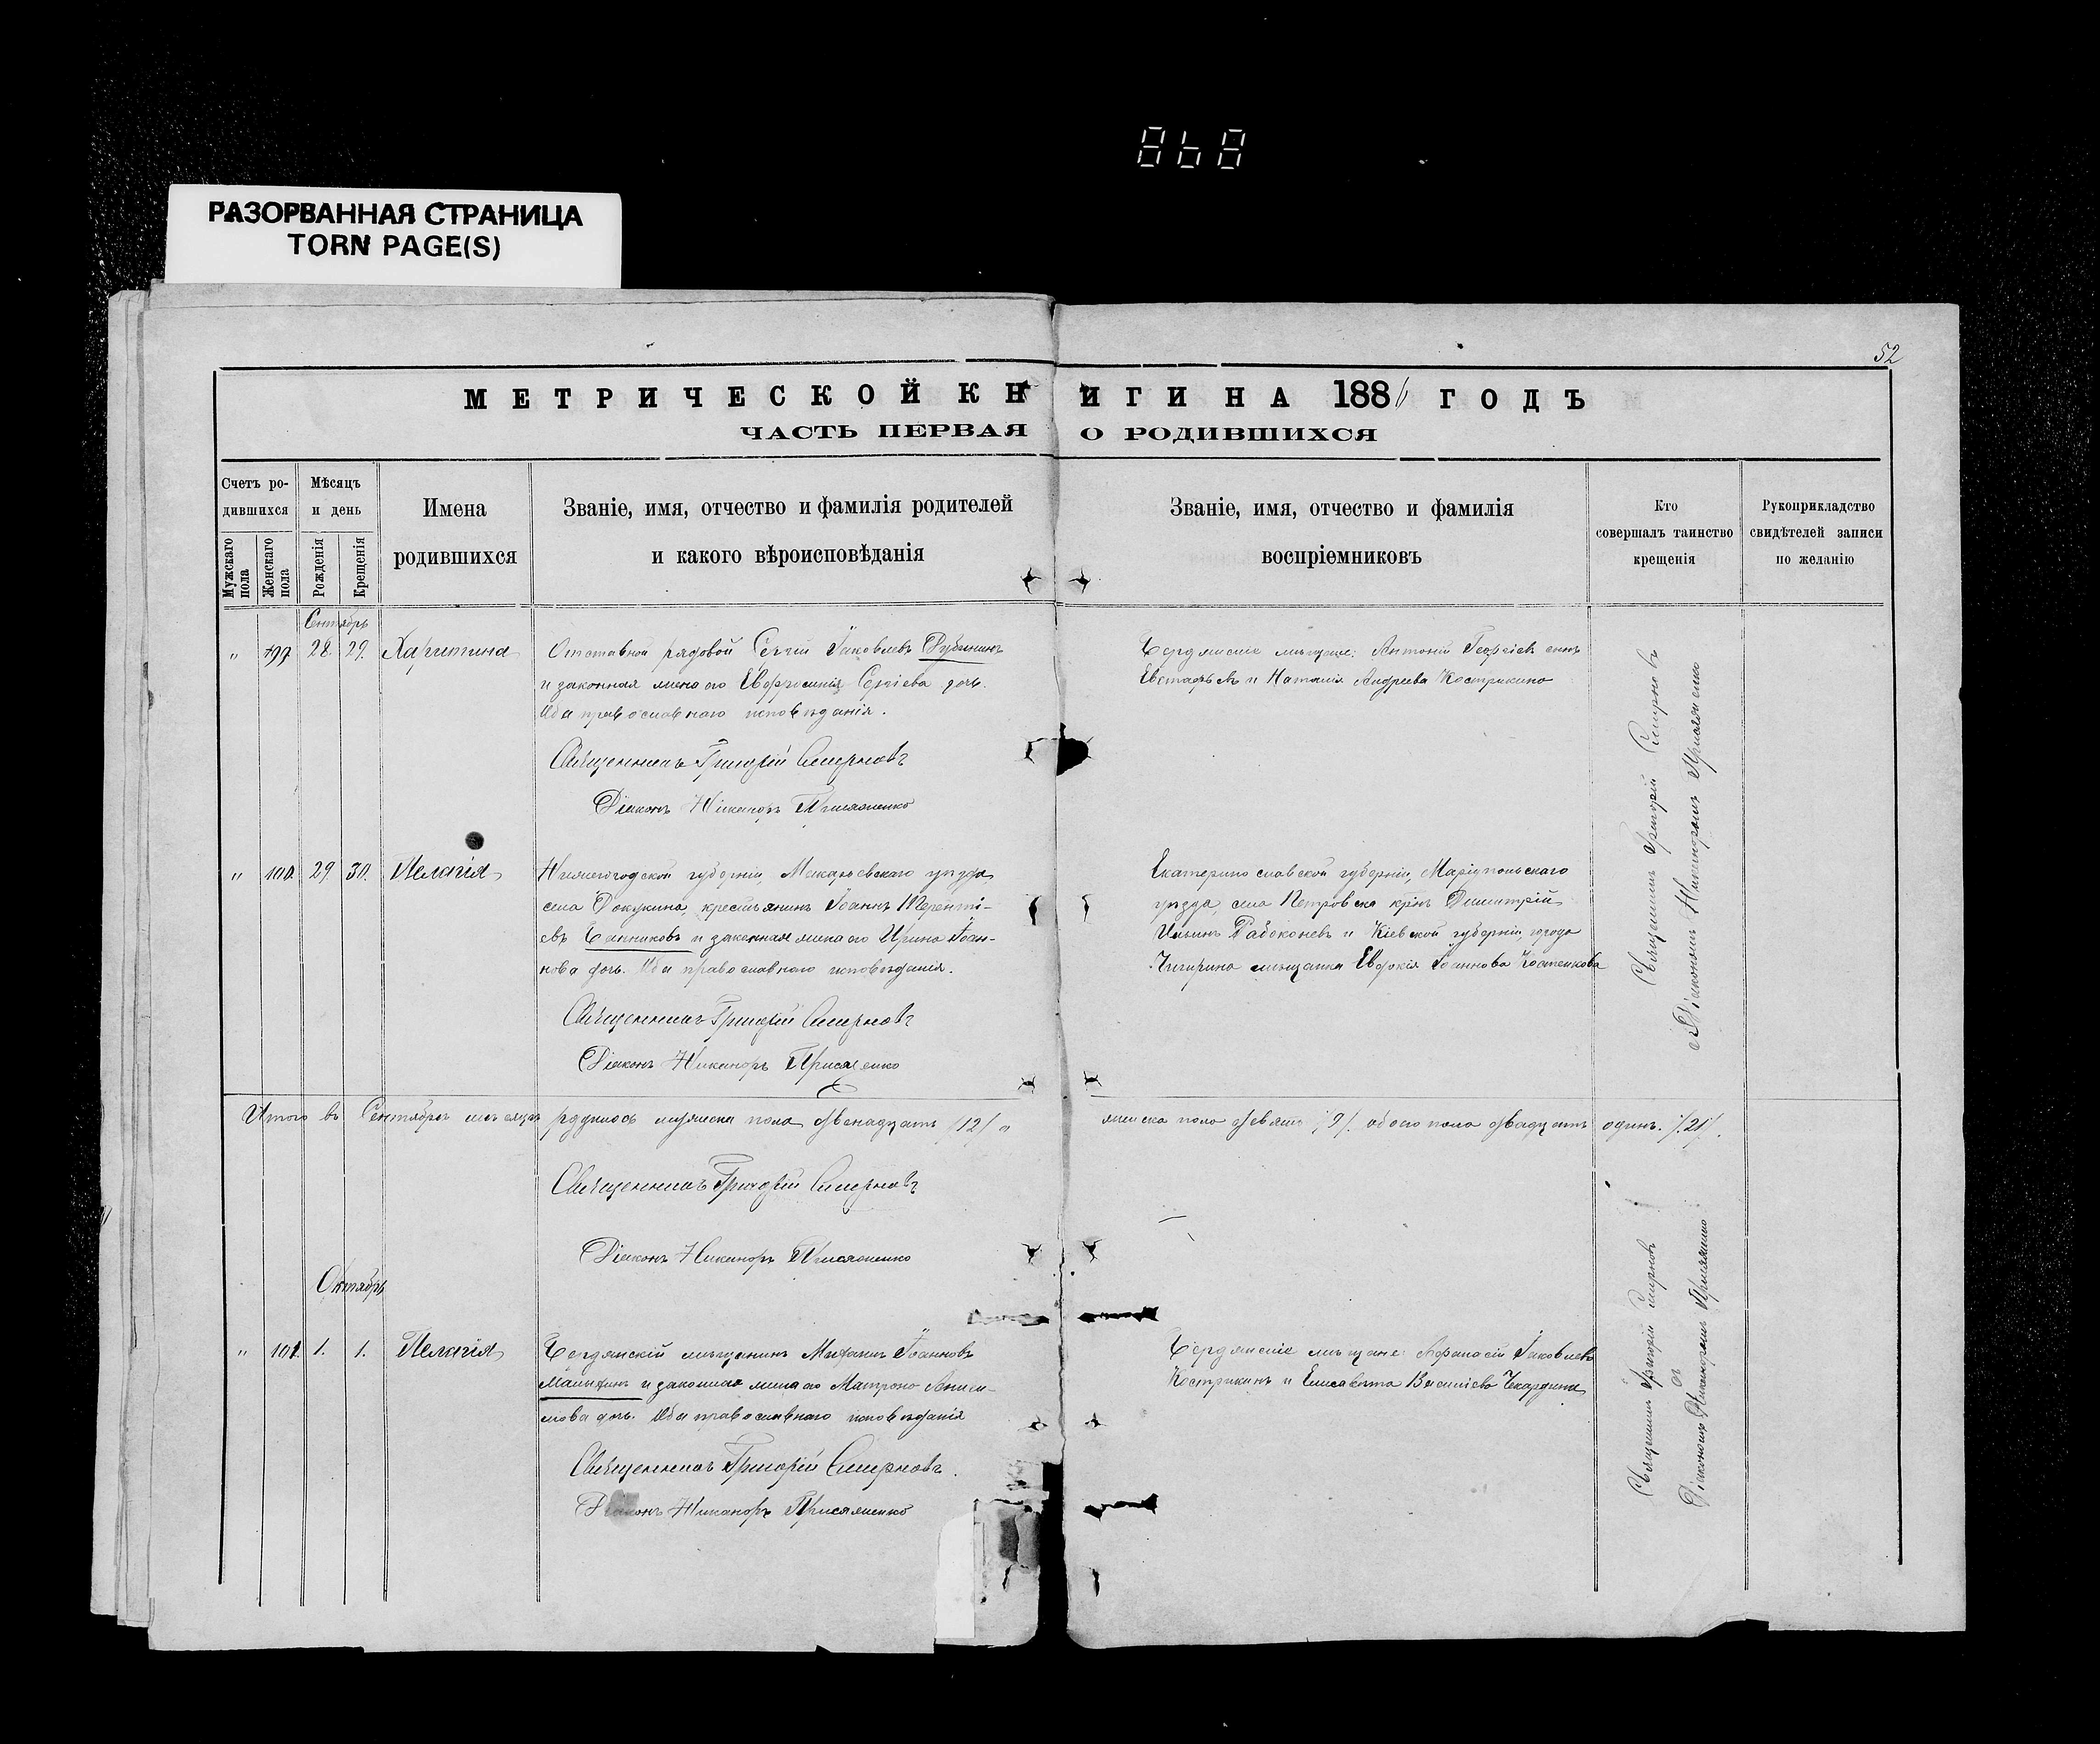 868
РАЗОРВАННАЯ СТРАНИЦА
TORN PAGE(S)
52
МЕТРИЧЕСКОЙ КНИГИ НА 1886 ГОДЪ
ЧАСТЬ ПЕРВАЯ О РОДИВШИХСЯ
Счетъ ро-
дившихся
Мужскаго пола
Женскаго пола
Мѣсяцъ
и день
Рожденія
Крещенія
Имена
родившихся
Званіе, имя, отчество и фамилія родителей
и какого вѣроисповѣданія
Званіе, имя, отчество и фамилія
воспріемниковъ
Кто
совершалъ таинство
крещенія
Рукоприкладство
свидѣтелей записи
по желанію
Сентябрь
" 99. 28. 29. Харитина
Отставной рядовой Сергій Іаковлевъ Дубининъ
и законная жена его Евфросинія Сергіева дочь.
Оба православнаго исповѣданія.
Священникъ Григорій Смирновъ
Діаконъ Никаноръ Присяженко
Бердянскіе мѣщане: Антоній Георгіевъ
и Наталія Андреева Кострикина
Священникъ Григорій Смирновъ
съ Діакономъ Никаноромъ Присяженко
" 100. 29. 30. Пелагія
Нижегородской губерніи, Макарьевскаго уѣзда,
села Докукина, крестьянинъ Іоаннъ Терентi-
евъ Банниковъ и законная жена его Ирина Іоан-
нова дочь. Оба православнаго исповѣданія.
Священникъ Григорій Смирновъ
Діаконъ Никаноръ Присяженко
Екатеринославской губерніи, Маріупольскаго
уѣзда, села Петровска крнъ Димитрій
Ильинъ Рабоконевъ и Кіевской губерніи, города
Чигирина мѣщанка Евдокія Іоаннова Костенкова
Итого въ Сентябрѣ мѣсяцѣ родилось мужеска пола двенадцать /12/ а
женска пола девять /9/. обоего пола двадцать одинъ. /21/.
Священникъ Григорій Смирновъ
Діаконъ Никаноръ Присяженко
Октябрь
" 101. 1. 1. Пелагія
Бердянскій мѣщанинъ Михаилъ Іоанновъ
Малыхинъ и законная жена его Матрона Аники-
мова дочь. Оба православнаго исповѣданія
Священникъ Григорій Смирновъ.
Діаконъ Никаноръ Присяженко
Бердянскіе мѣщане: Афанасій Іаковлевъ
Кострикинъ и Елисавета Василіева Чекардина
Священникъ Григорій Смирновъ
съ
Діакономъ Никаноромъ Присяженко